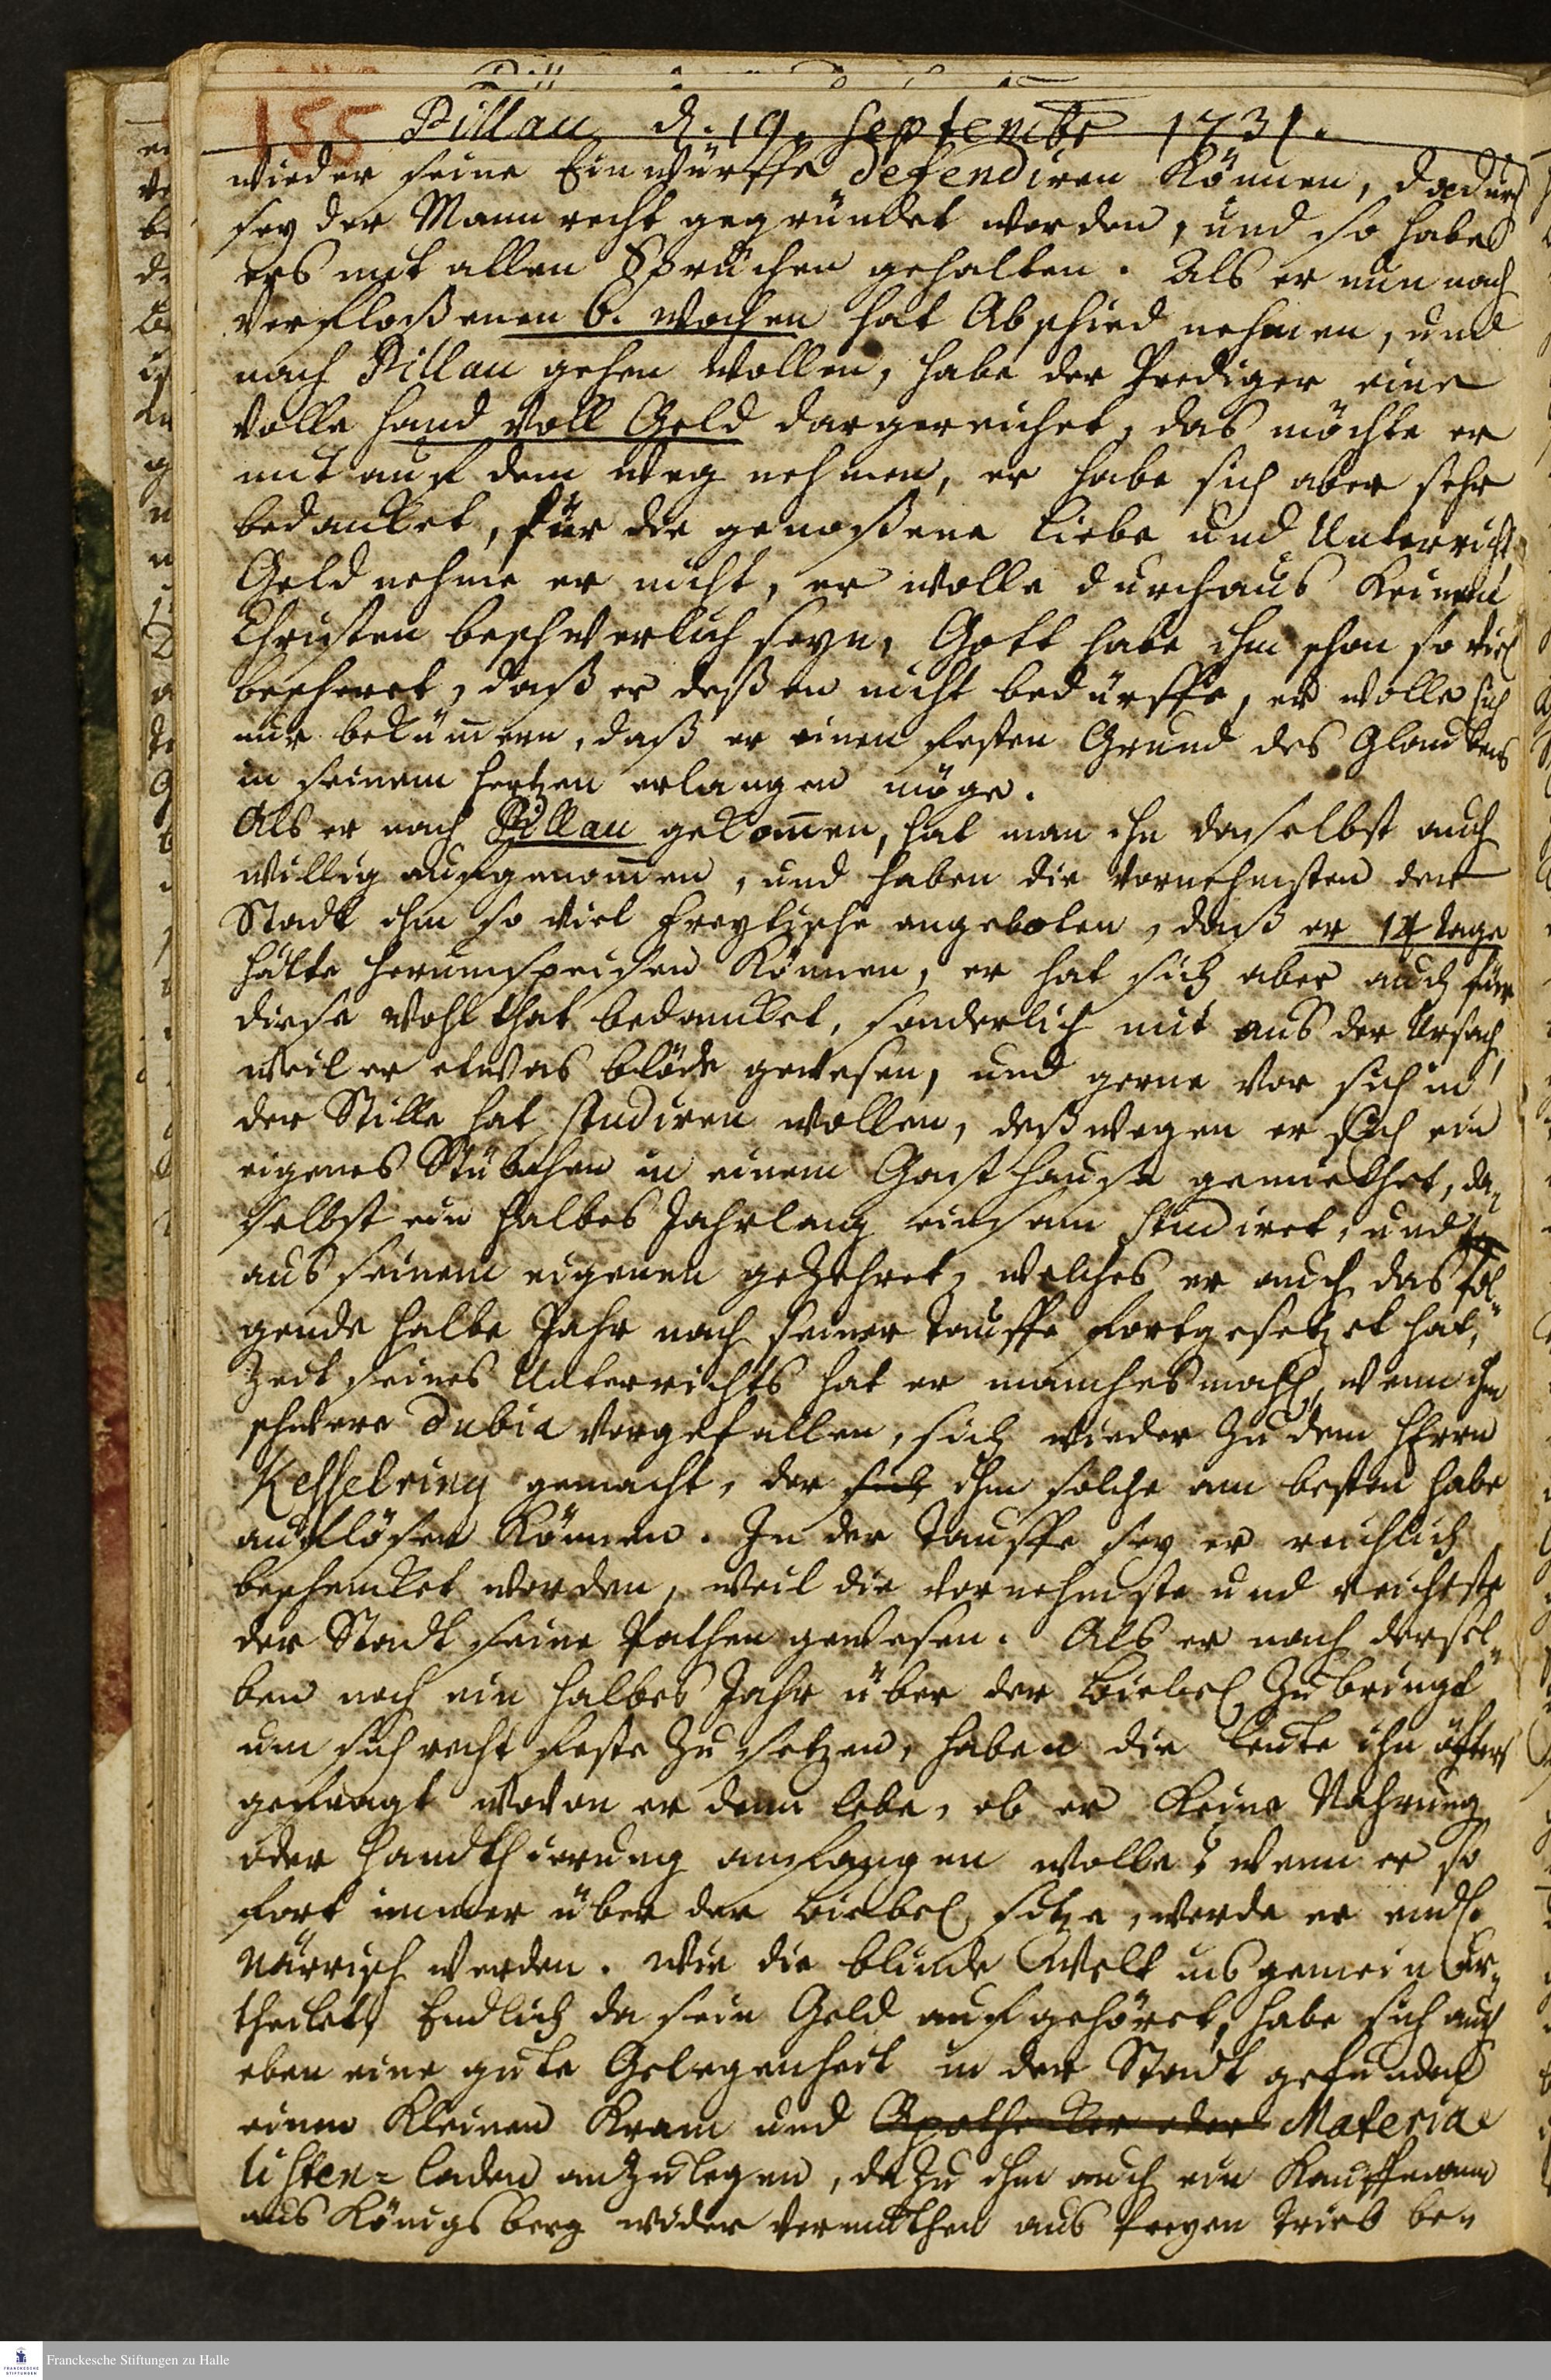 155 Pillau, d. 19. Septembr 1731.
wieder seine Einwürffe defendiren können, dadurch
sey der Mann recht gegründet worden, und so habe
ers mit allen Sprüchen gehalten. Als er nun nach
verfloßenen 6. Wochen hat Abschied nehmen, und
nach Pillau gehen wollen, habe der Prediger eine
volle Hand voll Geld dargereichet, das möchte er
mit auf dem Weg nehmen, er habe sich aber sehr
bedancket, für die genoßene Liebe und Unterricht
Geld nehme er nicht, er wolle durchaus keinem
Christen beschwerlich seyn, Gott habe ihm schon so viel
bescheret, daß er deßen nicht bedürffe, er wolle sich
nur beküm̄ern, daß er einen festen Grund des Glaubens
in seinem Hertzen erlangen möge.
Als er nach Pillau gekom̄en, hat man ihn daselbst auch
willig aufgenom̄en, und haben die Vornehmsten der
Stadt ihm so viel Freytische angeboten, daß er 14 tage
hätte herumspeisen können, er hat sich aber auch für
diese Wohlthat bedancket, sonderlich mit aus der Ursach,
weil er etwas blöde gewesen, und gerne vor sich in
der Stille hat studiren wollen, deßwegen er sich ein
eigenes Stübchen in einem Gasthause gemiethet, da-
selbst ein halbes Jahrlang einsam studiret, und
aus seinem eigenen gezehret, welches er auch das fol-
gende halbe Jahr nach seiner Tauffe fortgesetzet hat,
Zeit seines Unterrichts hat er manchesmahl, wenn ihm
schwere Dubia vorgefallen, sich wieder zu dem Herrn
Kesselring gemacht, der sich ihm solche am besten habe
auflösen können. In der Tauffe sey er reichlich
beschencket worden, weil die vornehmste und reichste
der Stadt seine Pathen gewesen. Als er nach dersel-
ben noch ein halbes Jahr über der Biebel zubringt
um sich recht feste zu setzen, haben die Leute ihn öfters
gefragt wovon er denn lebe, ob er keine Nahrung
oder Handthierung anfangen wolle? wenn er so
fort immer über der Biebel sitze, werde er endl.
närrisch werden. Wie die blinde Welt insgemein ur-
theilet, Endlich da sein Geld aufgehöret, habe sich auch
eben eine gute Gelegenheit in der Stadt gefunden
einen kleinen Kram und Apothecker oder Materia
listen-laden anzulegen, dazu ihm auch ein Kauffmann
aus Königsberg wider vermuthen aus freyen Trieb be-
Franckesche Stiftungen zu Halle